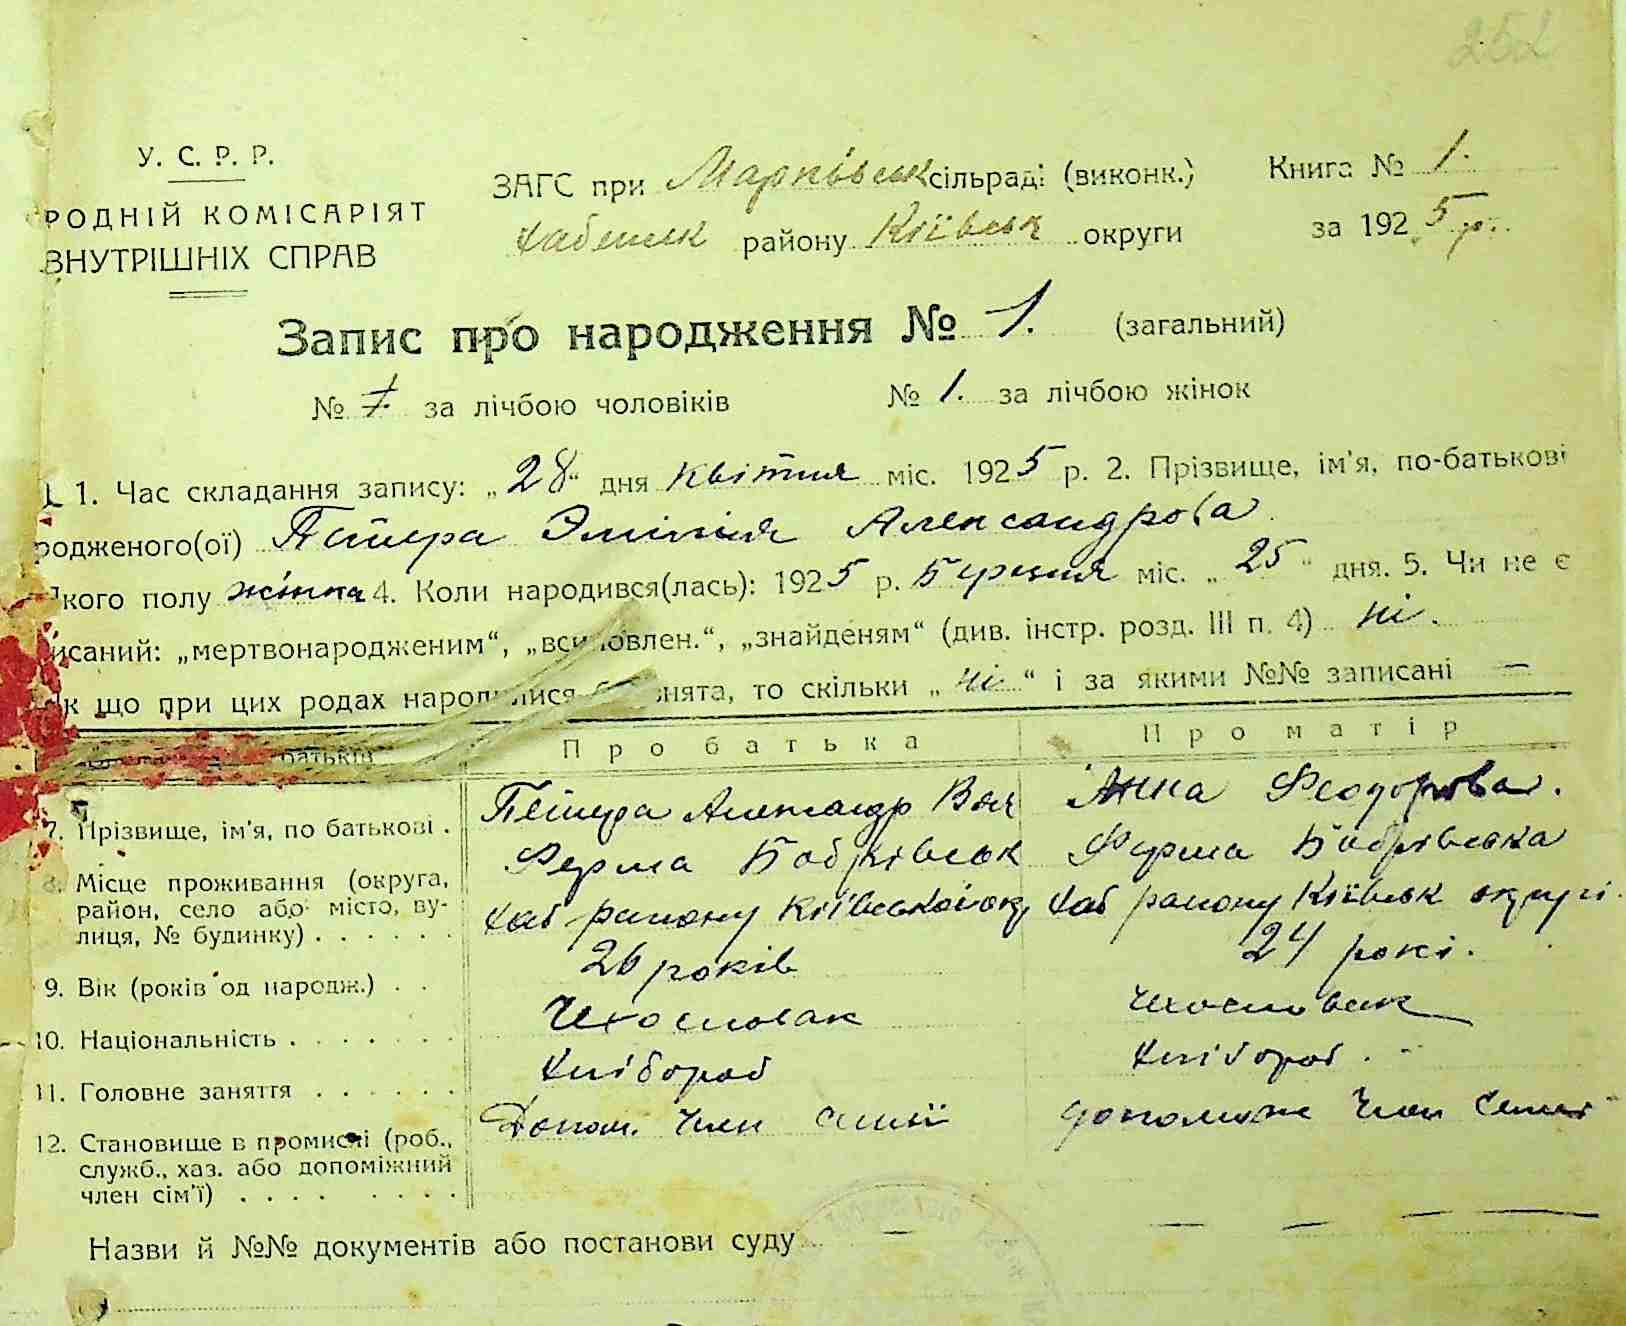 252
У. С. Р. Р.
РОДНІЙ КОМІСАРІЯТ
ВНУТРІШНІХ СПРАВ
ЗАГС при Марківськ сільраді (виконк.)
Хабенськ району Київськ округи
Книга № 1.
за 1925 р.
Запис про народження № 1. (загальний)
№ 1. за лічбою чоловіків № 1. за лічбою жінок
1. Час складання запису: „28“ дня квітня міс. 1925 р. 2. Прізвище, ім'я, по-батькові
родженого(ої) Александрова
якого полу жінка 4. Коли народився(лась): 1925 р. Березня міс. „25“ дня. 5. Чи не є
исаний: „мертвонародженим“, „всиновлен.“, „знайденям“ (див. інстр. розд. III п. 4) ні.
як що при цих родах народилися, то скільки „ні“ і за якими №№ записані —
батьків Про батька Про матір
7. Прізвище, ім'я, по батькові . Александр Анна Феодорова.
8. Місце проживання (округа, Ферма Бобрівськ Ферма Бобрівська
район, село або місто, ву- Хаб району Київської ок Хаб району Київськ округі.
лиця, № будинку) . . . . . .
9. Вік (років од народж.) . . 26 років 24 рокі.
10. Національність . . . . . . . Чехословак Чехословак
11. Головне заняття . . . . . . Хлібороб Хлібороб.
12. Становище в промислі (роб., Допом. Член Семії допоможн Член Семії
служб., хаз. або допоміжний
член сім'ї) . . . . . . . .
Назви й №№ документів або постанови суду — — — — —